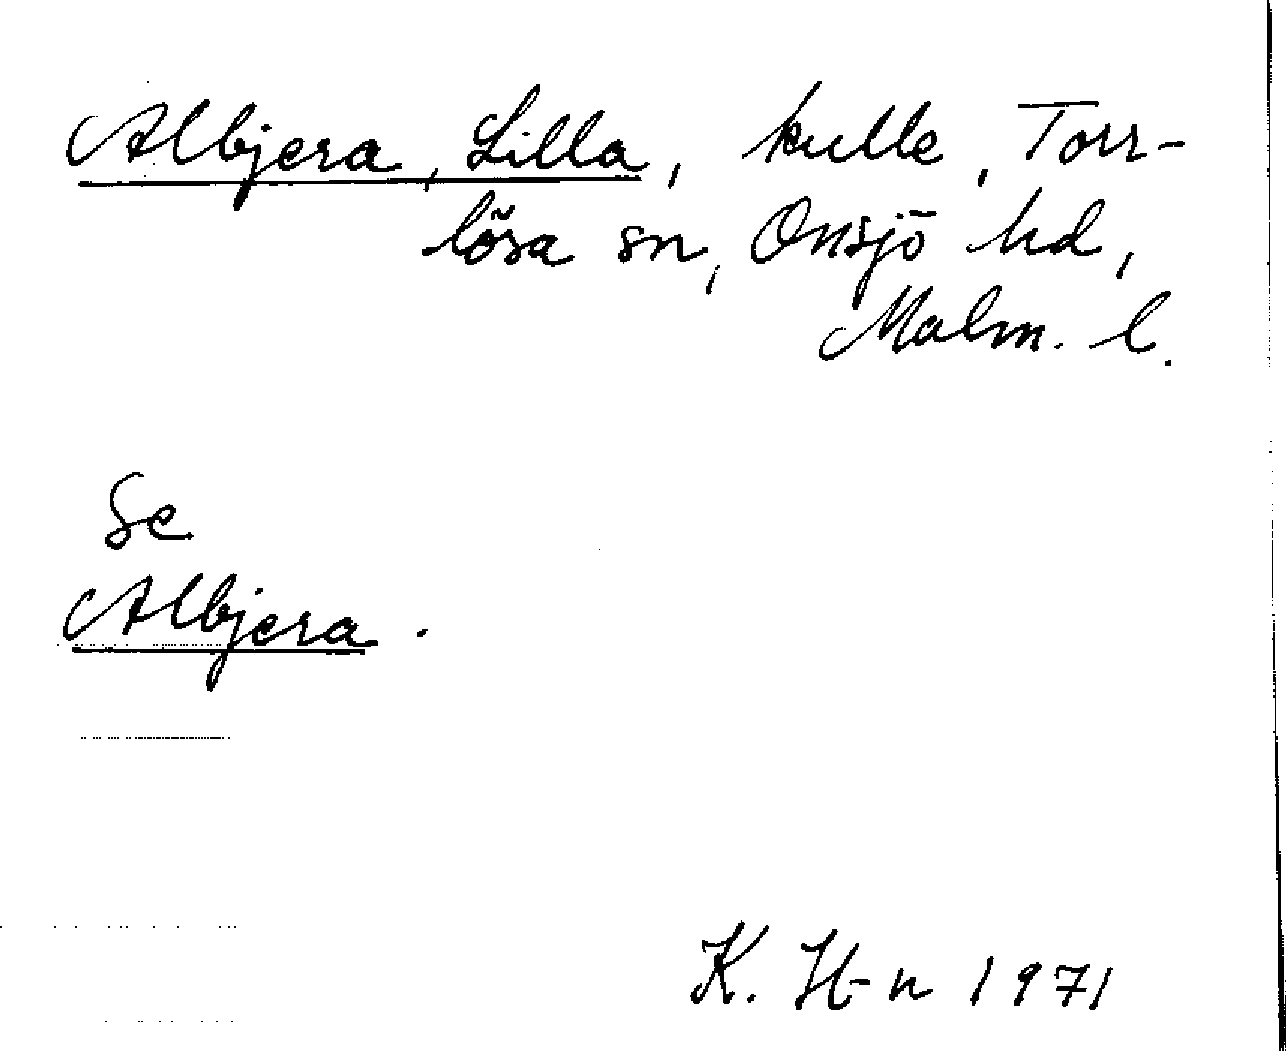 Albjera, Lilla, kulle, Torr-
lösa sn, Onsjö hd,
Malm. l.
Se
Albjera.
K. H-n 1971